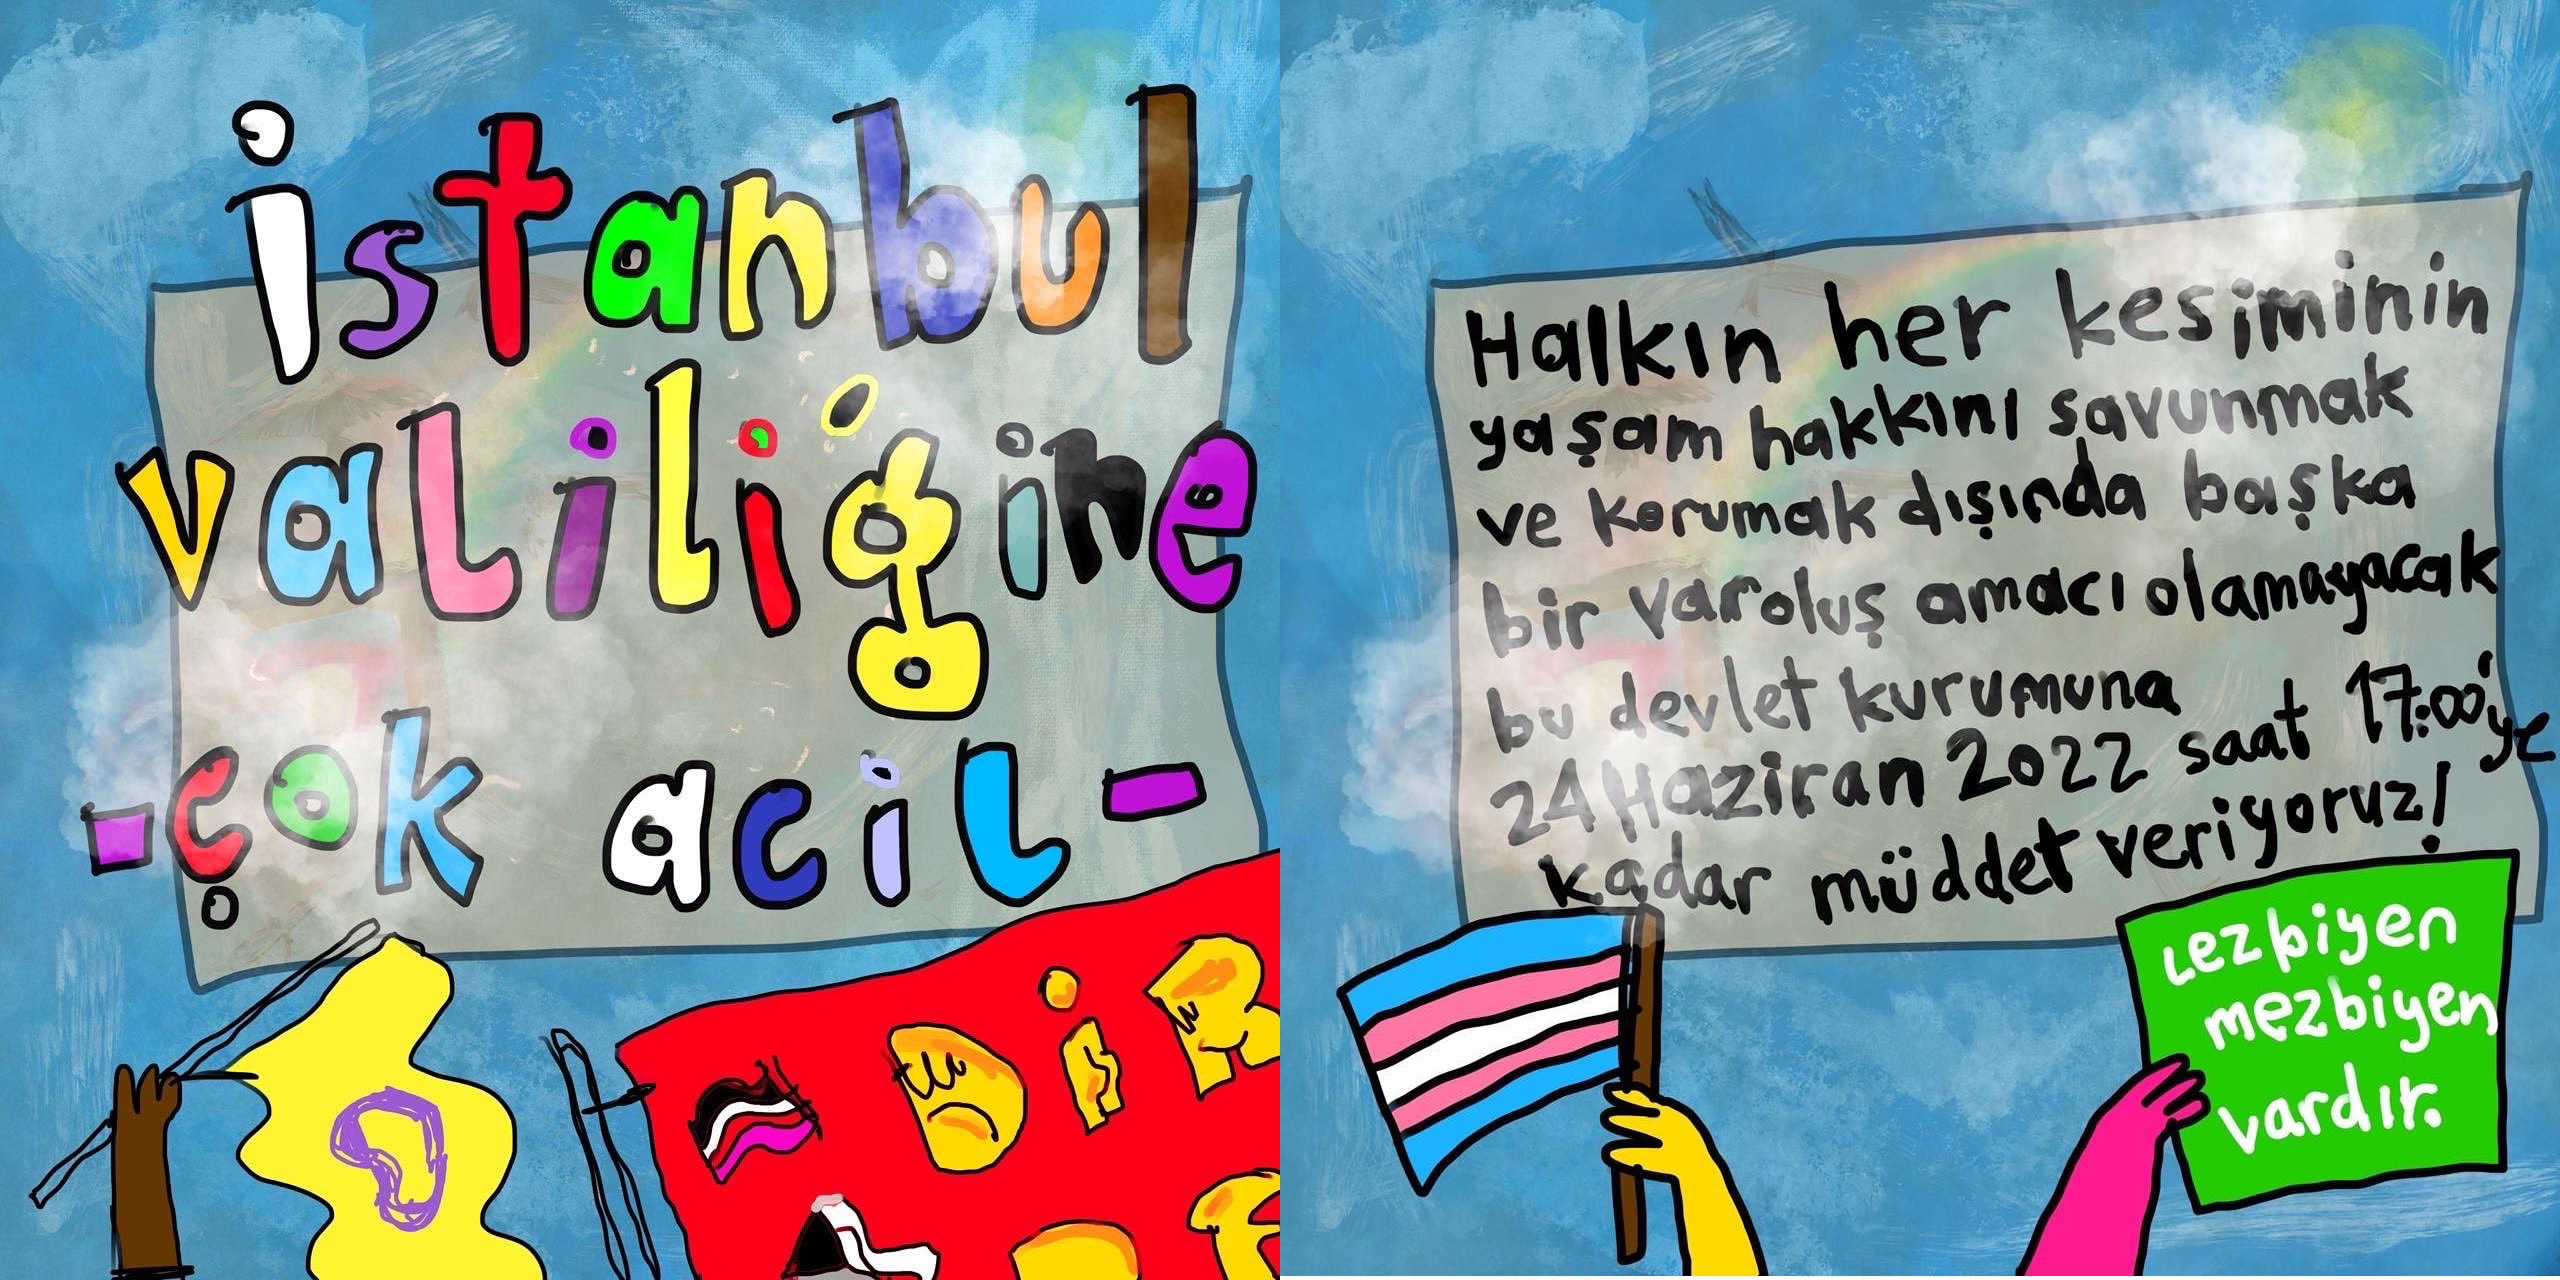 istanbul
valiliğine
-çok acil-
DİR
Halkın her kesiminin
yaşam hakkını savunmak
ve korumak dışında başka
bir varoluş amacı olamayacak
bu devlet kurumuna
24 Haziran 2022 saat 17:00'ye
kadar müddet veriyoruz!
Lezbiyen
mezbiyen
vardır.